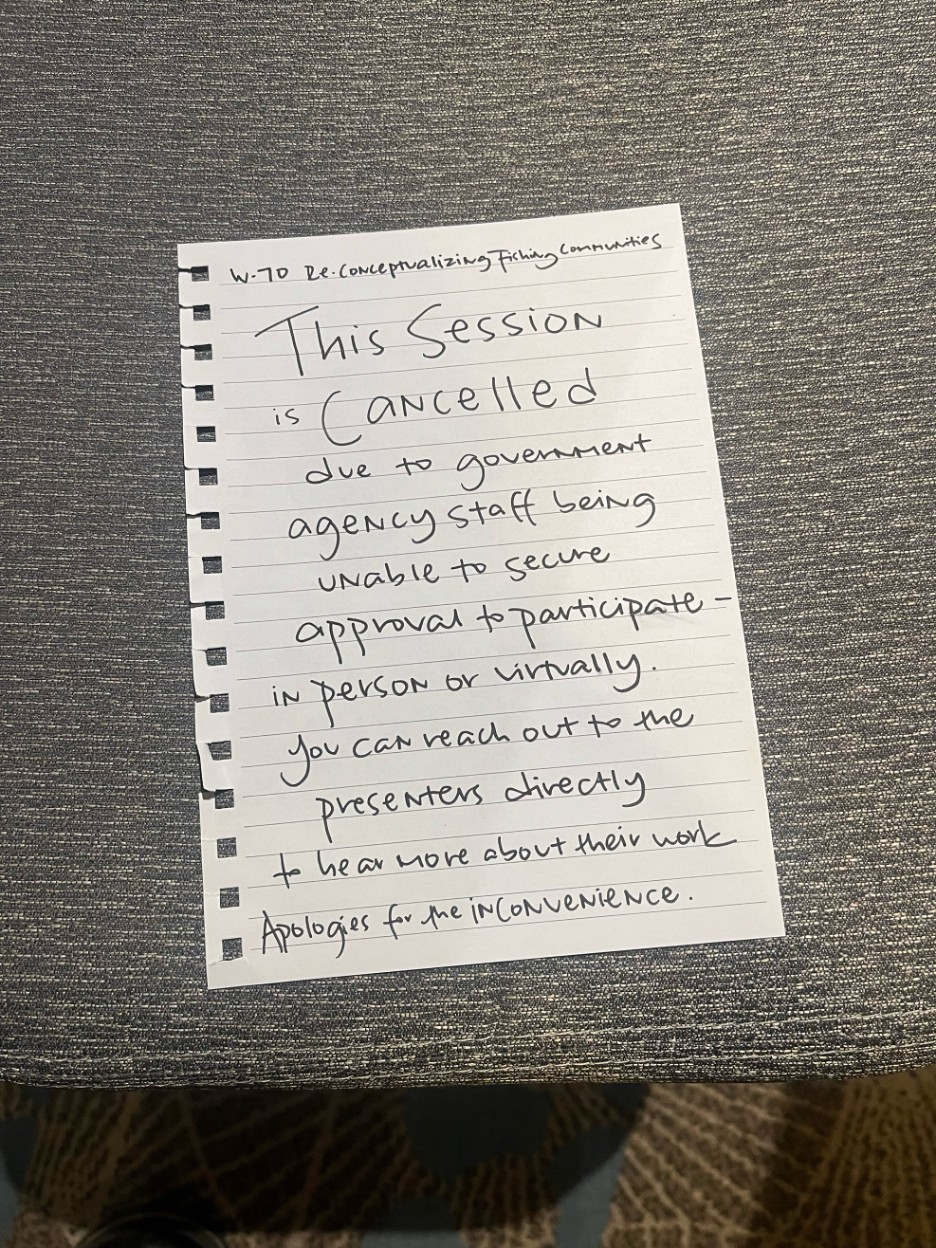 W-70 Re-Conceptualizing Fishing Communities
This Session
is Cancelled
due to government
agency staff being
unable to secure
approval to participate -
in person or virtually.
You can reach out to the
presenters directly
to hear more about their work
Apologies for the inconvenience.